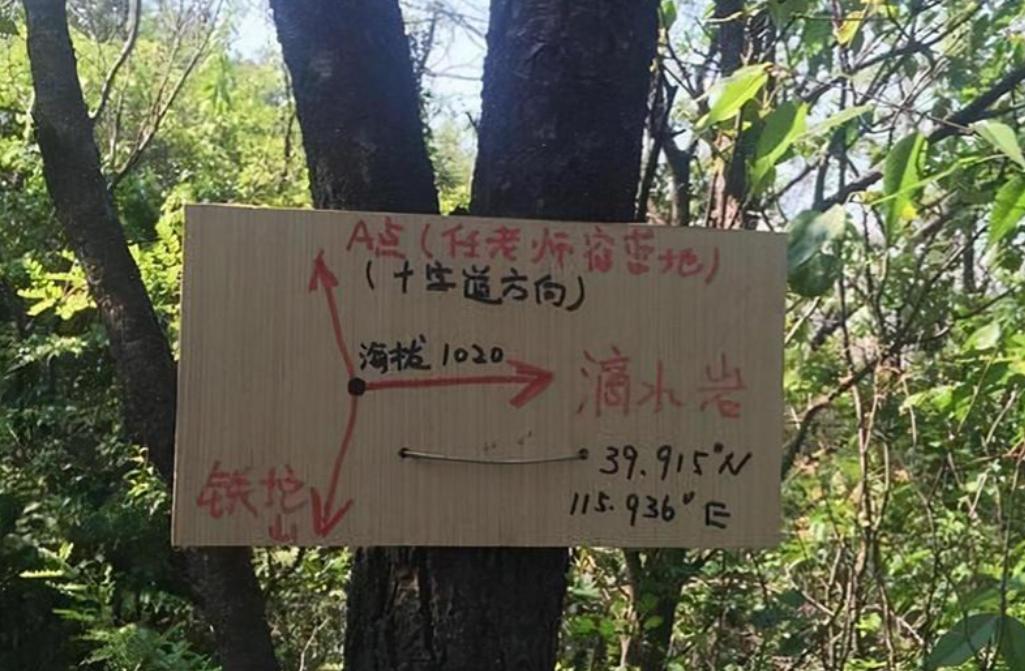 A点(任老师宿营地)
(十字道方向)
海拔 1020
滴水岩
39.915°N
115.936°E
铁坨
山